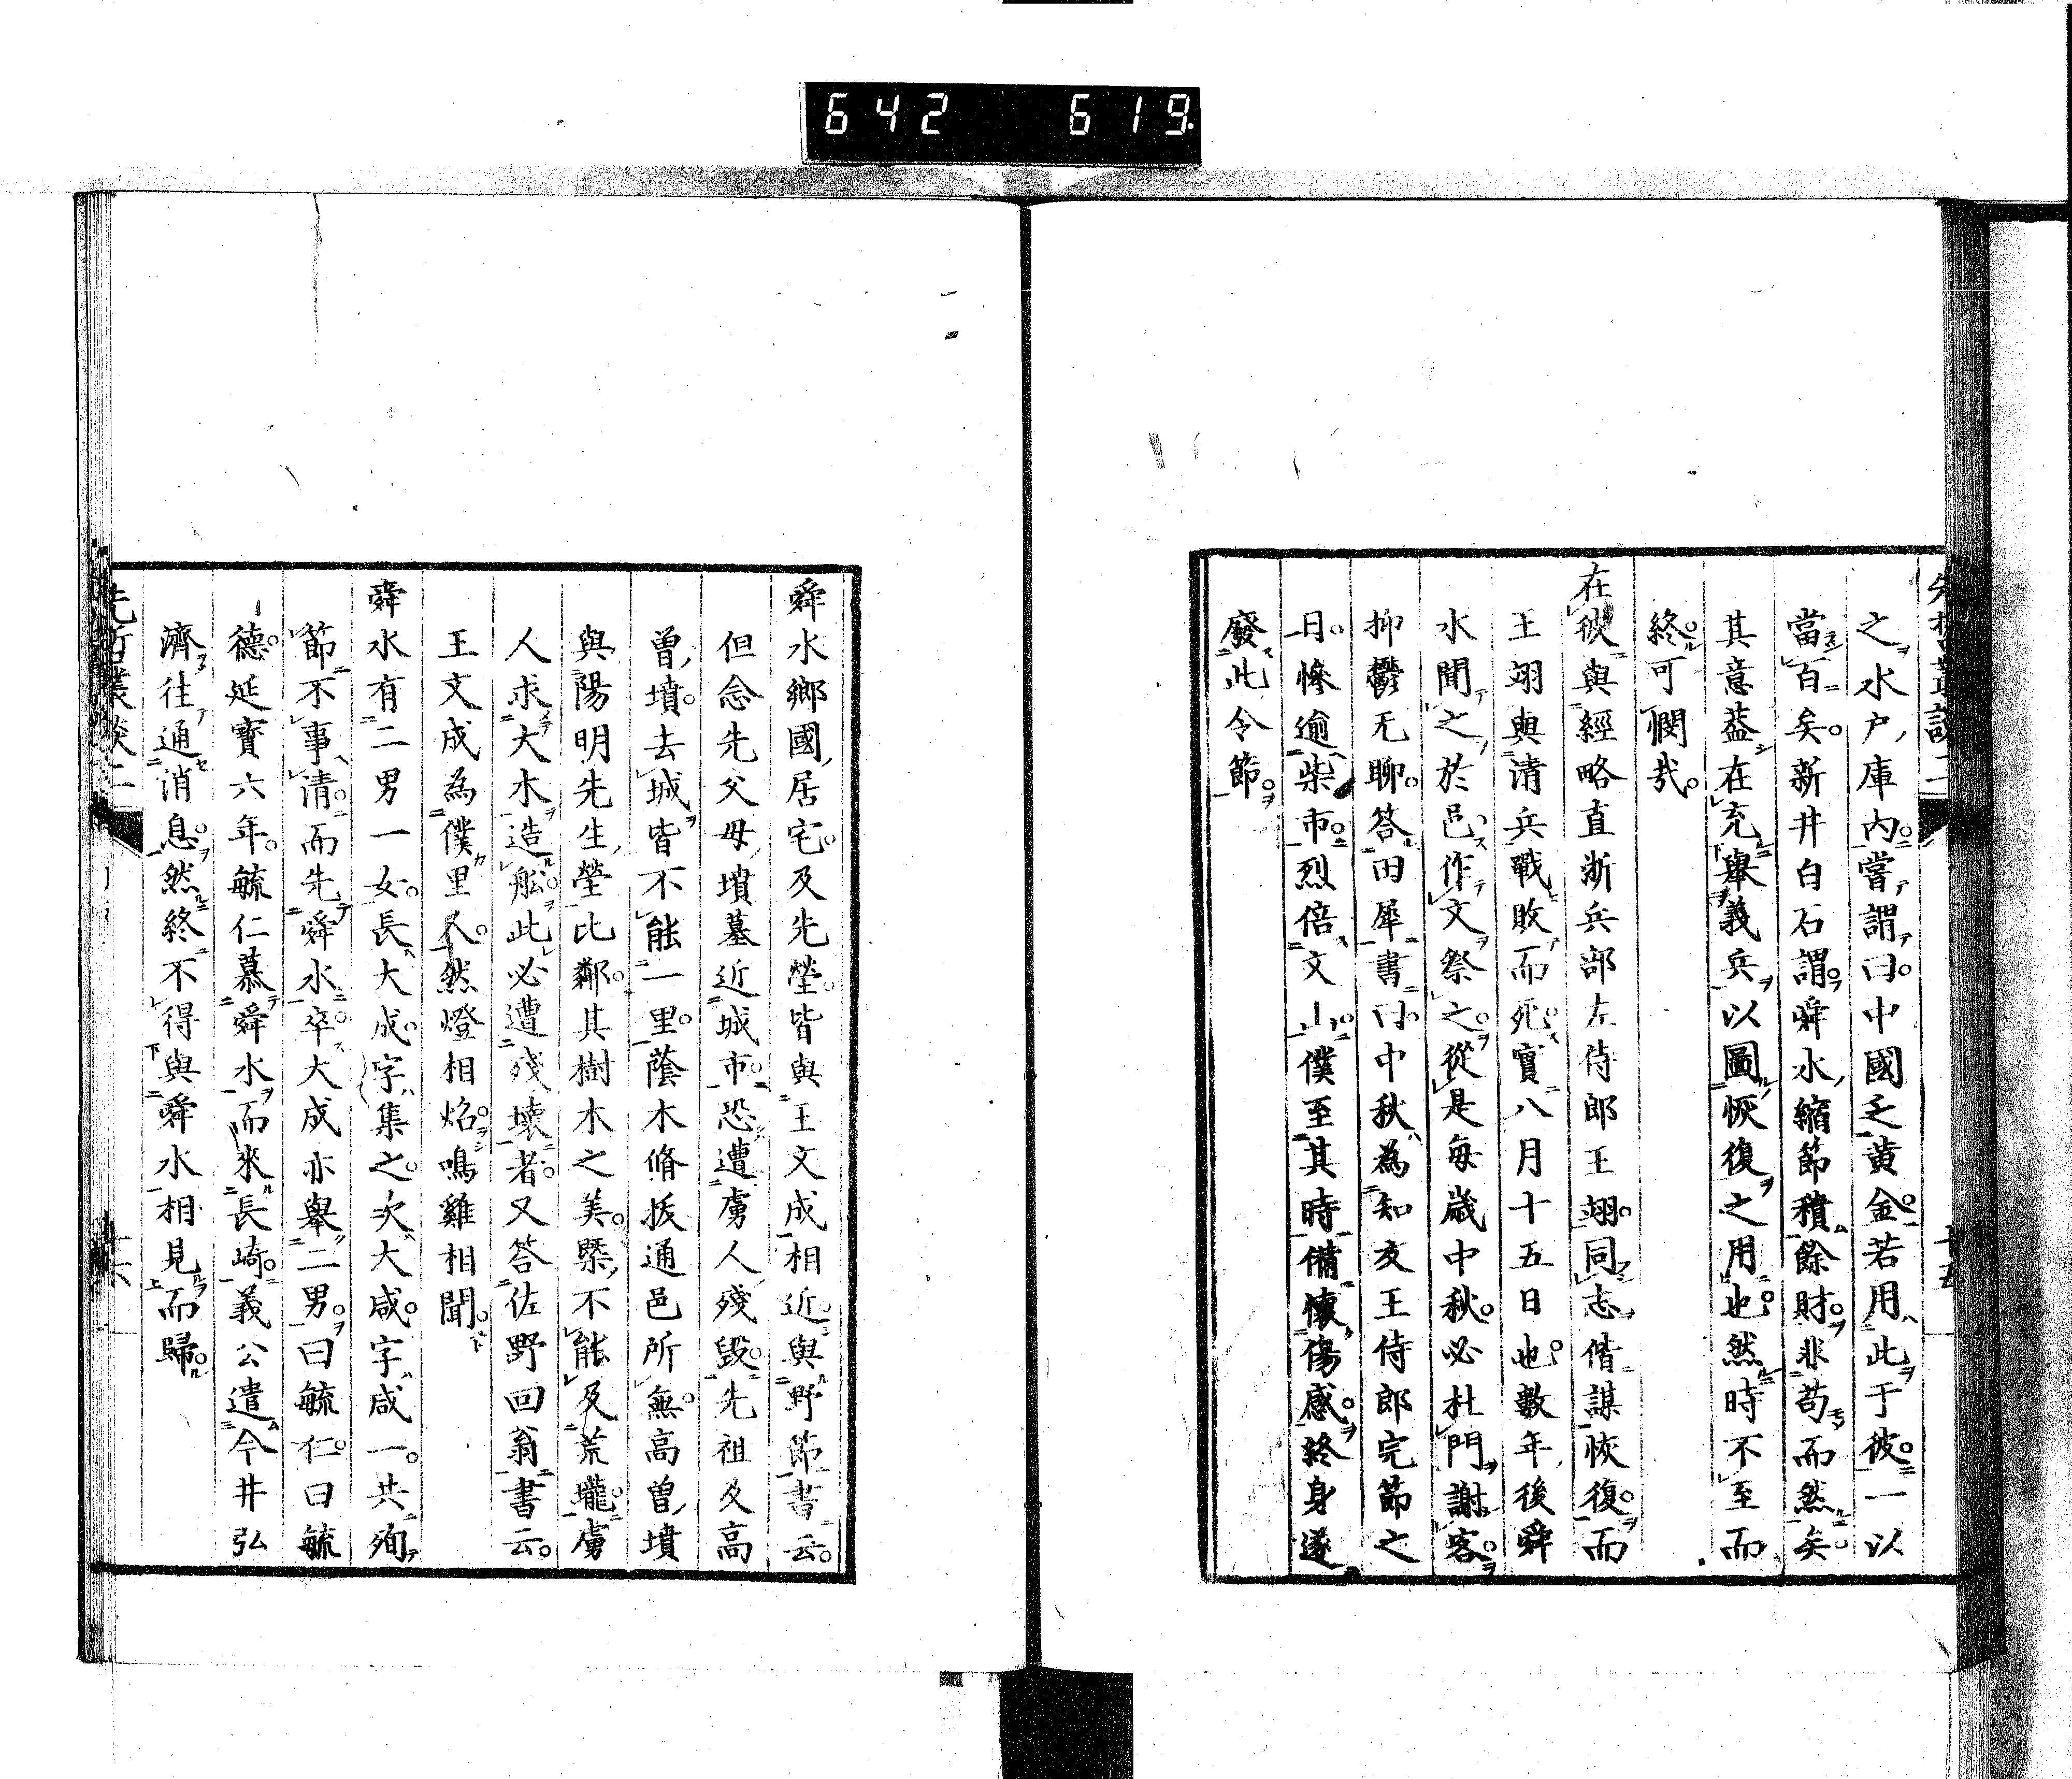 642 619
之水戶庫內嘗謂曰中國乏黃金若用此于彼一以
當百矣新井白石謂舜水縮節積餘財非苟而然矣
其意蓋在充舉義兵以圖恢復之用也然時不至而
終可憫哉
在彼與經略直浙兵部左侍郎王翊同志偕謀恢復而
王翊與清兵戰敗而死實八月十五日也數年後舜
水聞之於邑作文祭之從是每歲中秋必杜門謝客
抑鬱无聊答田犀書曰中秋為知友王侍郎完節之
日慘逾柴市烈倍文山僕至其時備懷傷感終身遂
廢此令節
舜水鄉國居宅及先塋皆與王文成相近與野節書云
但念先父母墳墓近城市恐遭虜人殘毀先祖及高
曾墳去城皆不能一里蔭木脩拔通邑所無高曾墳
與陽明先生塋比鄰其樹木之美槩不能及荒壠虜
人求大木造舩此必遭殘壞者又答佐野回翁書云
王文成為僕里人然燈相炤鳴雞相聞
舜水有二男一女長大成字集之次大咸字咸一共殉
節不事清而先舜水卒大成亦舉二男曰毓仁曰毓
德延寶六年毓仁慕舜水而來長崎義公遣今井弘
濟往通消息然終不得與舜水相見而歸
先哲叢談二